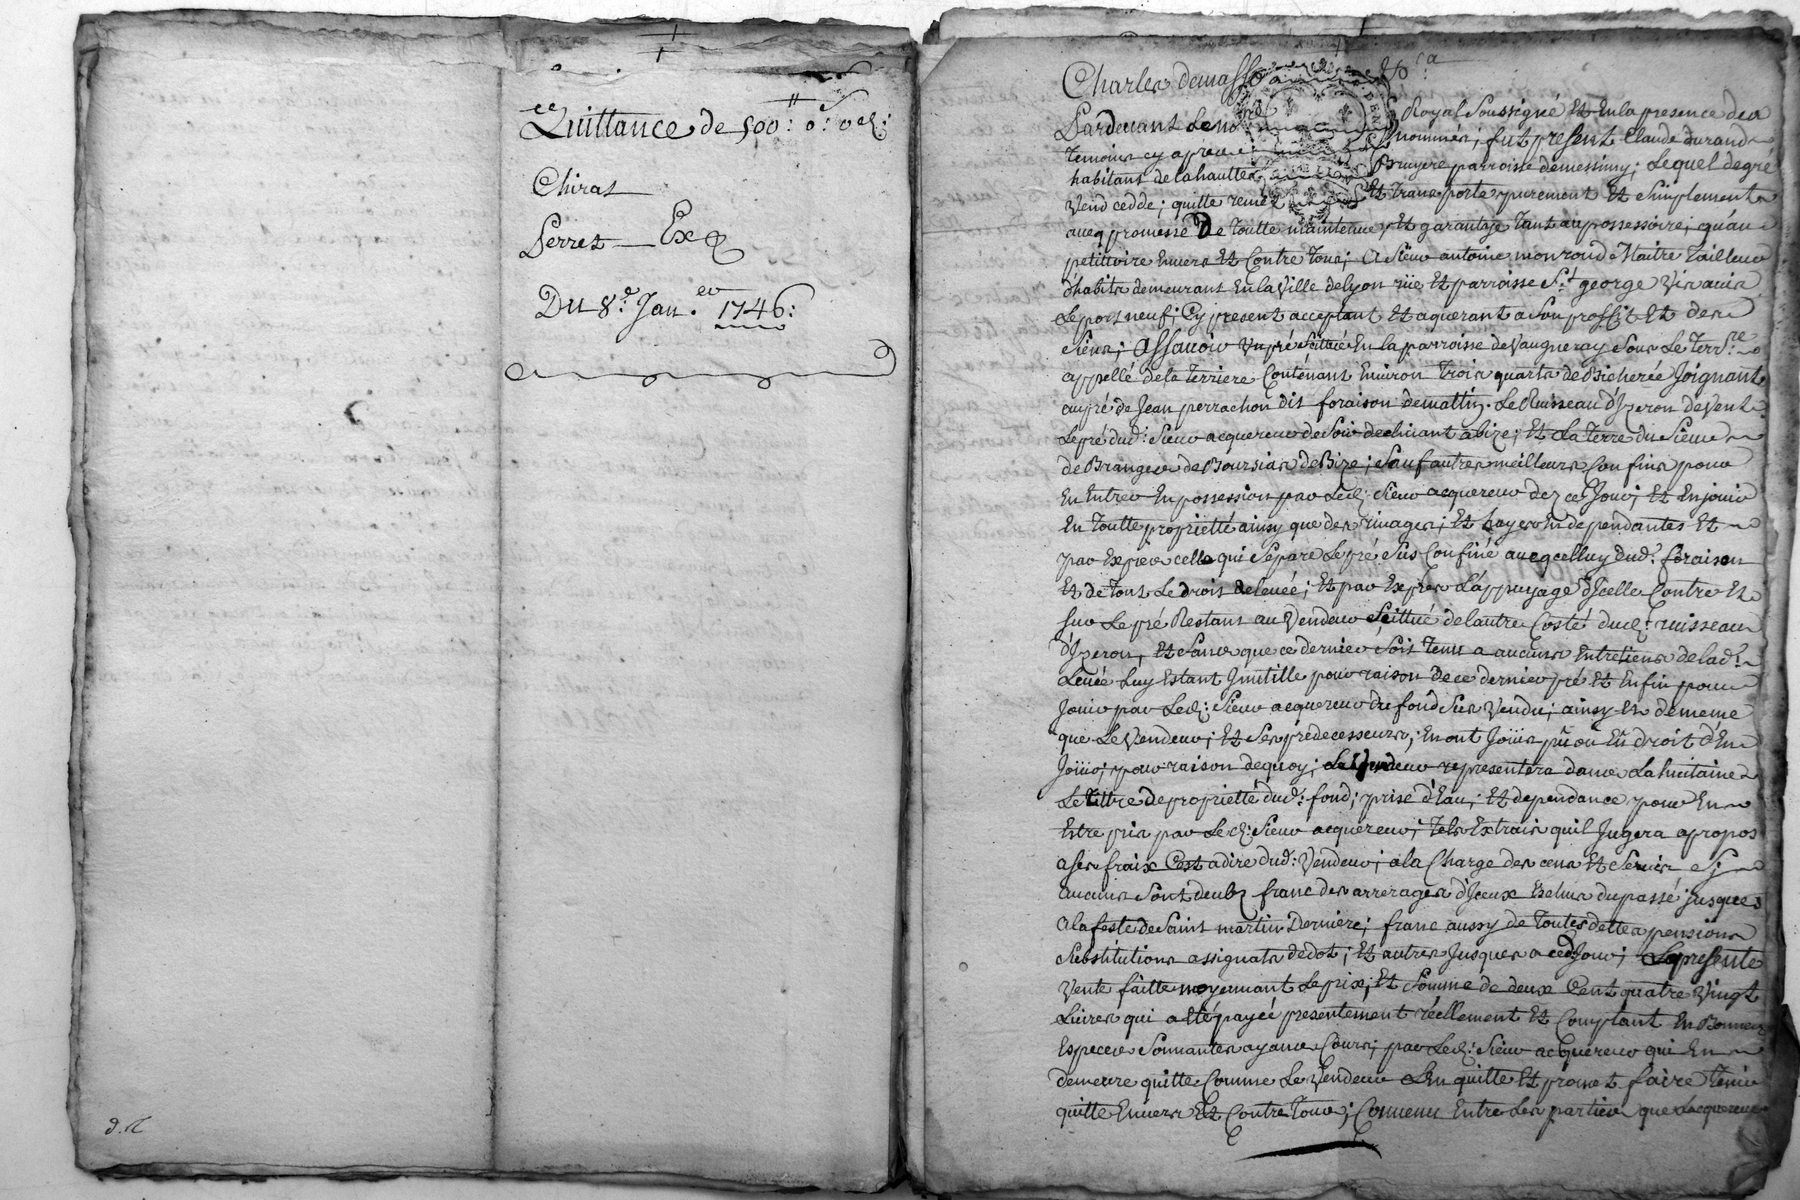 Quittance de 500: 0: 0 d:
Chirat
Perret Ex
Du 8.e Jan.er 1746:
Charles demasso
Pardevant Le no.re Royal Soussigné Et En la presence des
temoins cy apres nommés, fut present Claude durand
habitant de la haulte Bruyere parroisse de messimy; Lequel de gré
Vend cedde; quitte remet Et transporte purement Et Simplement
avecq promesse De toutte maintenue, Et garantage tant au possessoire; qu'au
petittoire Envers Et Contre tous; a Sieur antoine monrond Maitre Tailleur
d'habits demeurant En la Ville de Lyon rüe Et parroisse S.t george Vis avis
Le port neuf; Cy present acceptant Et aquerant a Son proffit Et des
Siens; Assavoir Un pré Scittué En la parroisse de Vaugneray Sous Le Terr.re
appellé de la terriere Contenant Environ trois quarts de Bicherée Joignant
au pré de Jean perrachon dit foraison de mattin. Le Ruisseau d'Izeron de Vent
Le pré dud: Sieur acquereur de Soir declinant a bize; Et La terre du Sieur
de Branges de Boursias de Bize; Sauf autres meilleurs Confins pour
En Entrer En possession par Led: Sieur acquereur dez ce Jour; Et En jouir
En toutte proprietté ainsy que des rivages; Et hayes En dependantes Et
par Exprès celle qui Separe Le pré Sus Confiné avecq celluy dud.t foraison
Et de tout Le droit de levée; Et par Exprès L'appuyage d'Icelle Contre Et
Sur Le pré Restant au Vendeur Scittué de lautre Costé dud: ruisseau
d'Izeron, Et Sans que ce dernier Soit tenu a aucuns Entretiens de lad.e
Levée Luy Estant Jnutille pour raison de ce dernier pré Et Enfin pour
Jouir par Led: Sieur acquereur du fond Sus Vendu; ainsy Et de meme
que Le Vendeur; Et Ses predecesseurs; En ont Joüis pû ou Eû droit d'En
Joüir; pour raison de quoy; Le Vendeur representera dans La huitaine
Le tittre de proprietté dud: fond; prise d'Eau; Et dependance pour En
Estre pris par Led: Sieur acquereur; tels Extraits quil Jugera apropos
a Ses fraix C'est adire dud: Vendeur; a la Charge des cens Et Servis Sy
aucuns Sont deubs franc des arrerages d'Jceux Eschus du passé jusques
a la feste de Saint martin Derniere; franc aussy de toutes dettes pensions
Substitutions assignats de dot; Et autres Jusques a ced Jour; La presente
Vente faitte moyennant Le prix; Et Somme de deux Cent quatre Vingt
Livres qui a Eté payée presentement réellement Et Comptant En Bonnes
Especes Sonnantes ayans Cours; par Led: Sieur acquereur qui En
demeure quitte Comme Le Vendeur L'En quitte Et promet faire tenir
quitte Envers Et Contre tous; Convenu Entre Les parties que Lacquereur